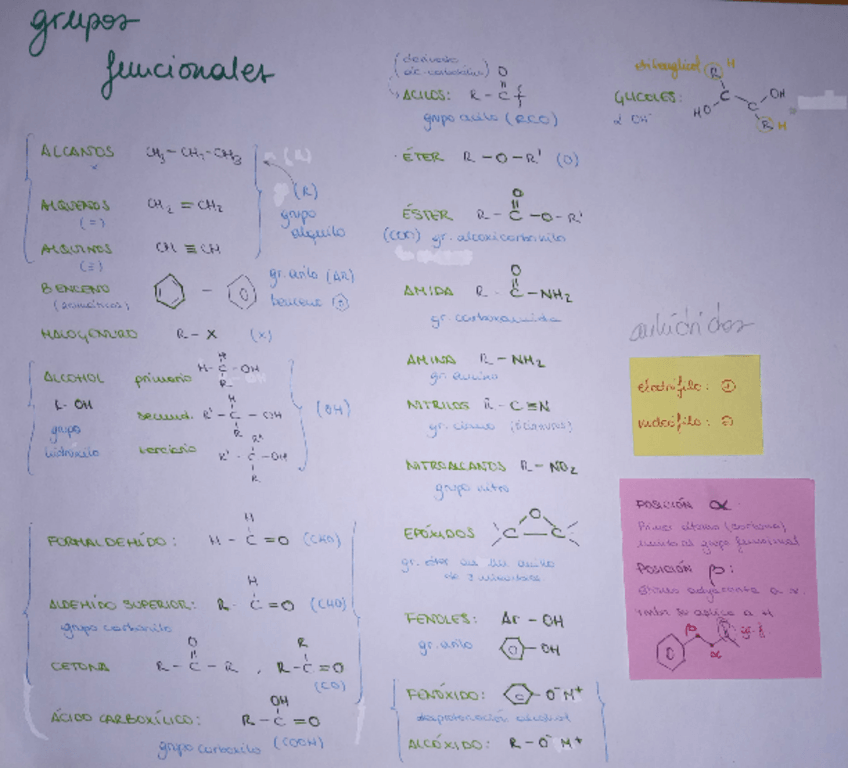 grupos
funcionales
ALCANOS CH3-CH2-CH3
ALQUENOS CH2=CH2
(=)
ALQUINOS CH≡CH
(≡)
(R)
grupo
alquilo
BENCENO
(aromáticos)
gr. arilo (AR)
benceno
HALOGENURO R-X (X)
ALCOHOL
R-OH
grupo
hidroxilo
primario H-C-OH
H
R
secund. R'-C-OH
H
R
terciario R'-C-OH
R''
R
(OH)
FORMALDEHÍDO: H-C=O (CHO)
H
ALDEHÍDO SUPERIOR: R-C=O (CHO)
H
grupo carbonilo
CETONA R-C-R, R-C=O
O
R
(CO)
ÁCIDO CARBOXÍLICO: R-C=O
OH
grupo carboxilo (COOH)
(derivado
ác. carboxílico)
ACILOS: R-C
O
grupo acilo (RCO)
ÉTER R-O-R' (O)
ÉSTER R-C-O-R'
O
(COO) gr. alcoxicarbonilo
AMIDA R-C-NH2
O
gr. carboxamida
AMINA R-NH2
gr. amino
NITRILOS R-C≡N
gr. ciano (cianuros)
NITROALCANOS R-NO2
grupo nitro
EPÓXIDOS C C
O
gr. éter en un anillo
de 3 miembros
FENOLES: Ar-OH
gr. arilo -OH
FENÓXIDO: -O⁻M⁺
desprotonación alcohol
ALCÓXIDO: R-O⁻M⁺
etilenglicol
GLICOLES:
2 OH⁻
R H
C C OH
HO R H
anhídridos
electrófilo: ⊕
nucleófilo: ⊖
POSICIÓN α
Primer átomo (carbono)
unido al grupo funcional
POSICIÓN β:
átomo adyacente a α.
β
α
gr. f.